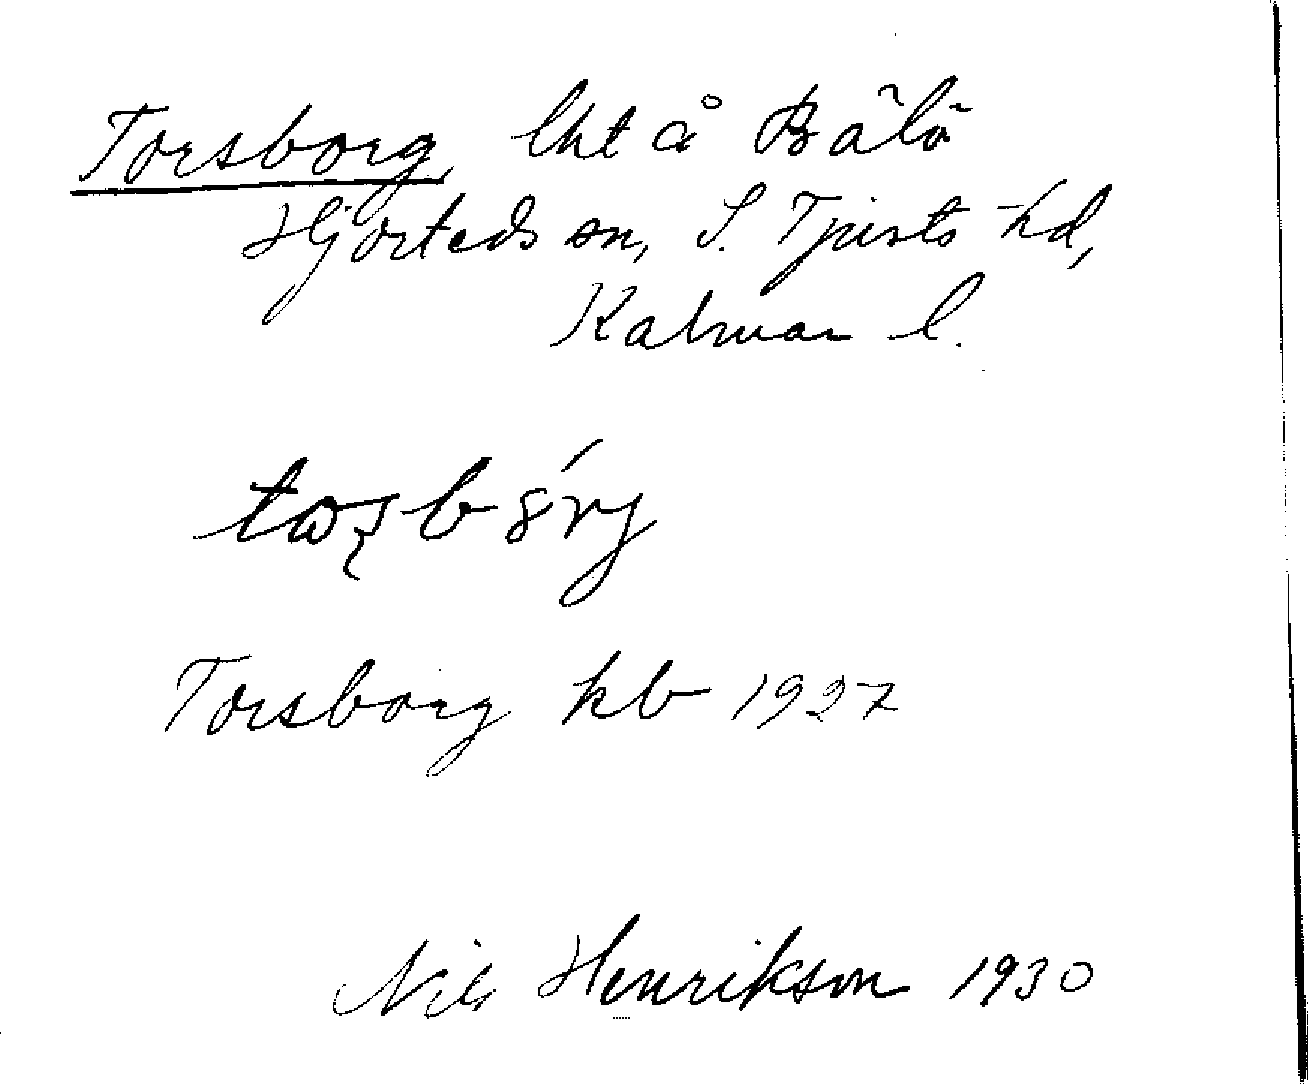 Torsborg, lht å Bälö
Hjorteds sn, S. Tjusts hd,
Kalmar l.
Torsborg kb 1927
Nils Henrikson 1930